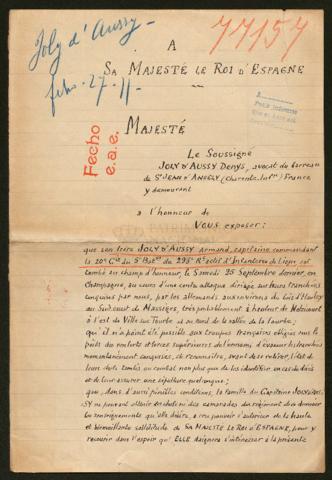 Joly d'Aussy -
fecho - 27 - 11 -
77157
A
SA MAJESTÉ LE ROI D'ESPAGNE
MAJESTÉ
Fecho
e.a.e.
Le Soussigné
JOLY D'AUSSY DENYS, avocat du barreau
de St JEAN D'ANGELY (Charente Infre) France
y demeurant
a l'honneur de
VOUS exposer:
que son frère JOLY D'AUSSY Armand, capitaine commandant
le 20e Cie du 5e Baton du 293e Rt actif d'Infanterie de Ligne, est
tombé au champ d'honneur, le Samedi 25 Septembre dernier, en
Champagne, au cours d'une contre attaque dirigée sur leurs tranchées
conquises par nous, par les allemands aux environs du
au Sud-ouest de Massiges, très probablement à hauteur de
à l'est de Ville sur Tourbe et au nord de la vallée de la Tourbe;
qu'il n'a point été possible aux troupes françaises obligées sous le
poids des renforts et forces supérieures de l'ennemi d'évacuer les tranchées
momentanément conquises, de reconnaître, avant de se retirer, l'état de
leurs morts tombés au combat non plus que de les identifier en cas de décès
et de leur assurer une sépulture quelconque;
que, dans d'aussi pénibles conditions, la famille du Capitaine JOLY D'AUS-
SY ne pouvant obtenir en dehors des camarades du régiment de ce dernier
les renseignements qu'elle désire, a cru pouvoir s'autoriser de la haute
et bienveillante sollicitude de SA MAJESTÉ LE ROI D'ESPAGNE, pour y
recourir dans l'espoir qu'ELLE daignera s'intéresser à la présente